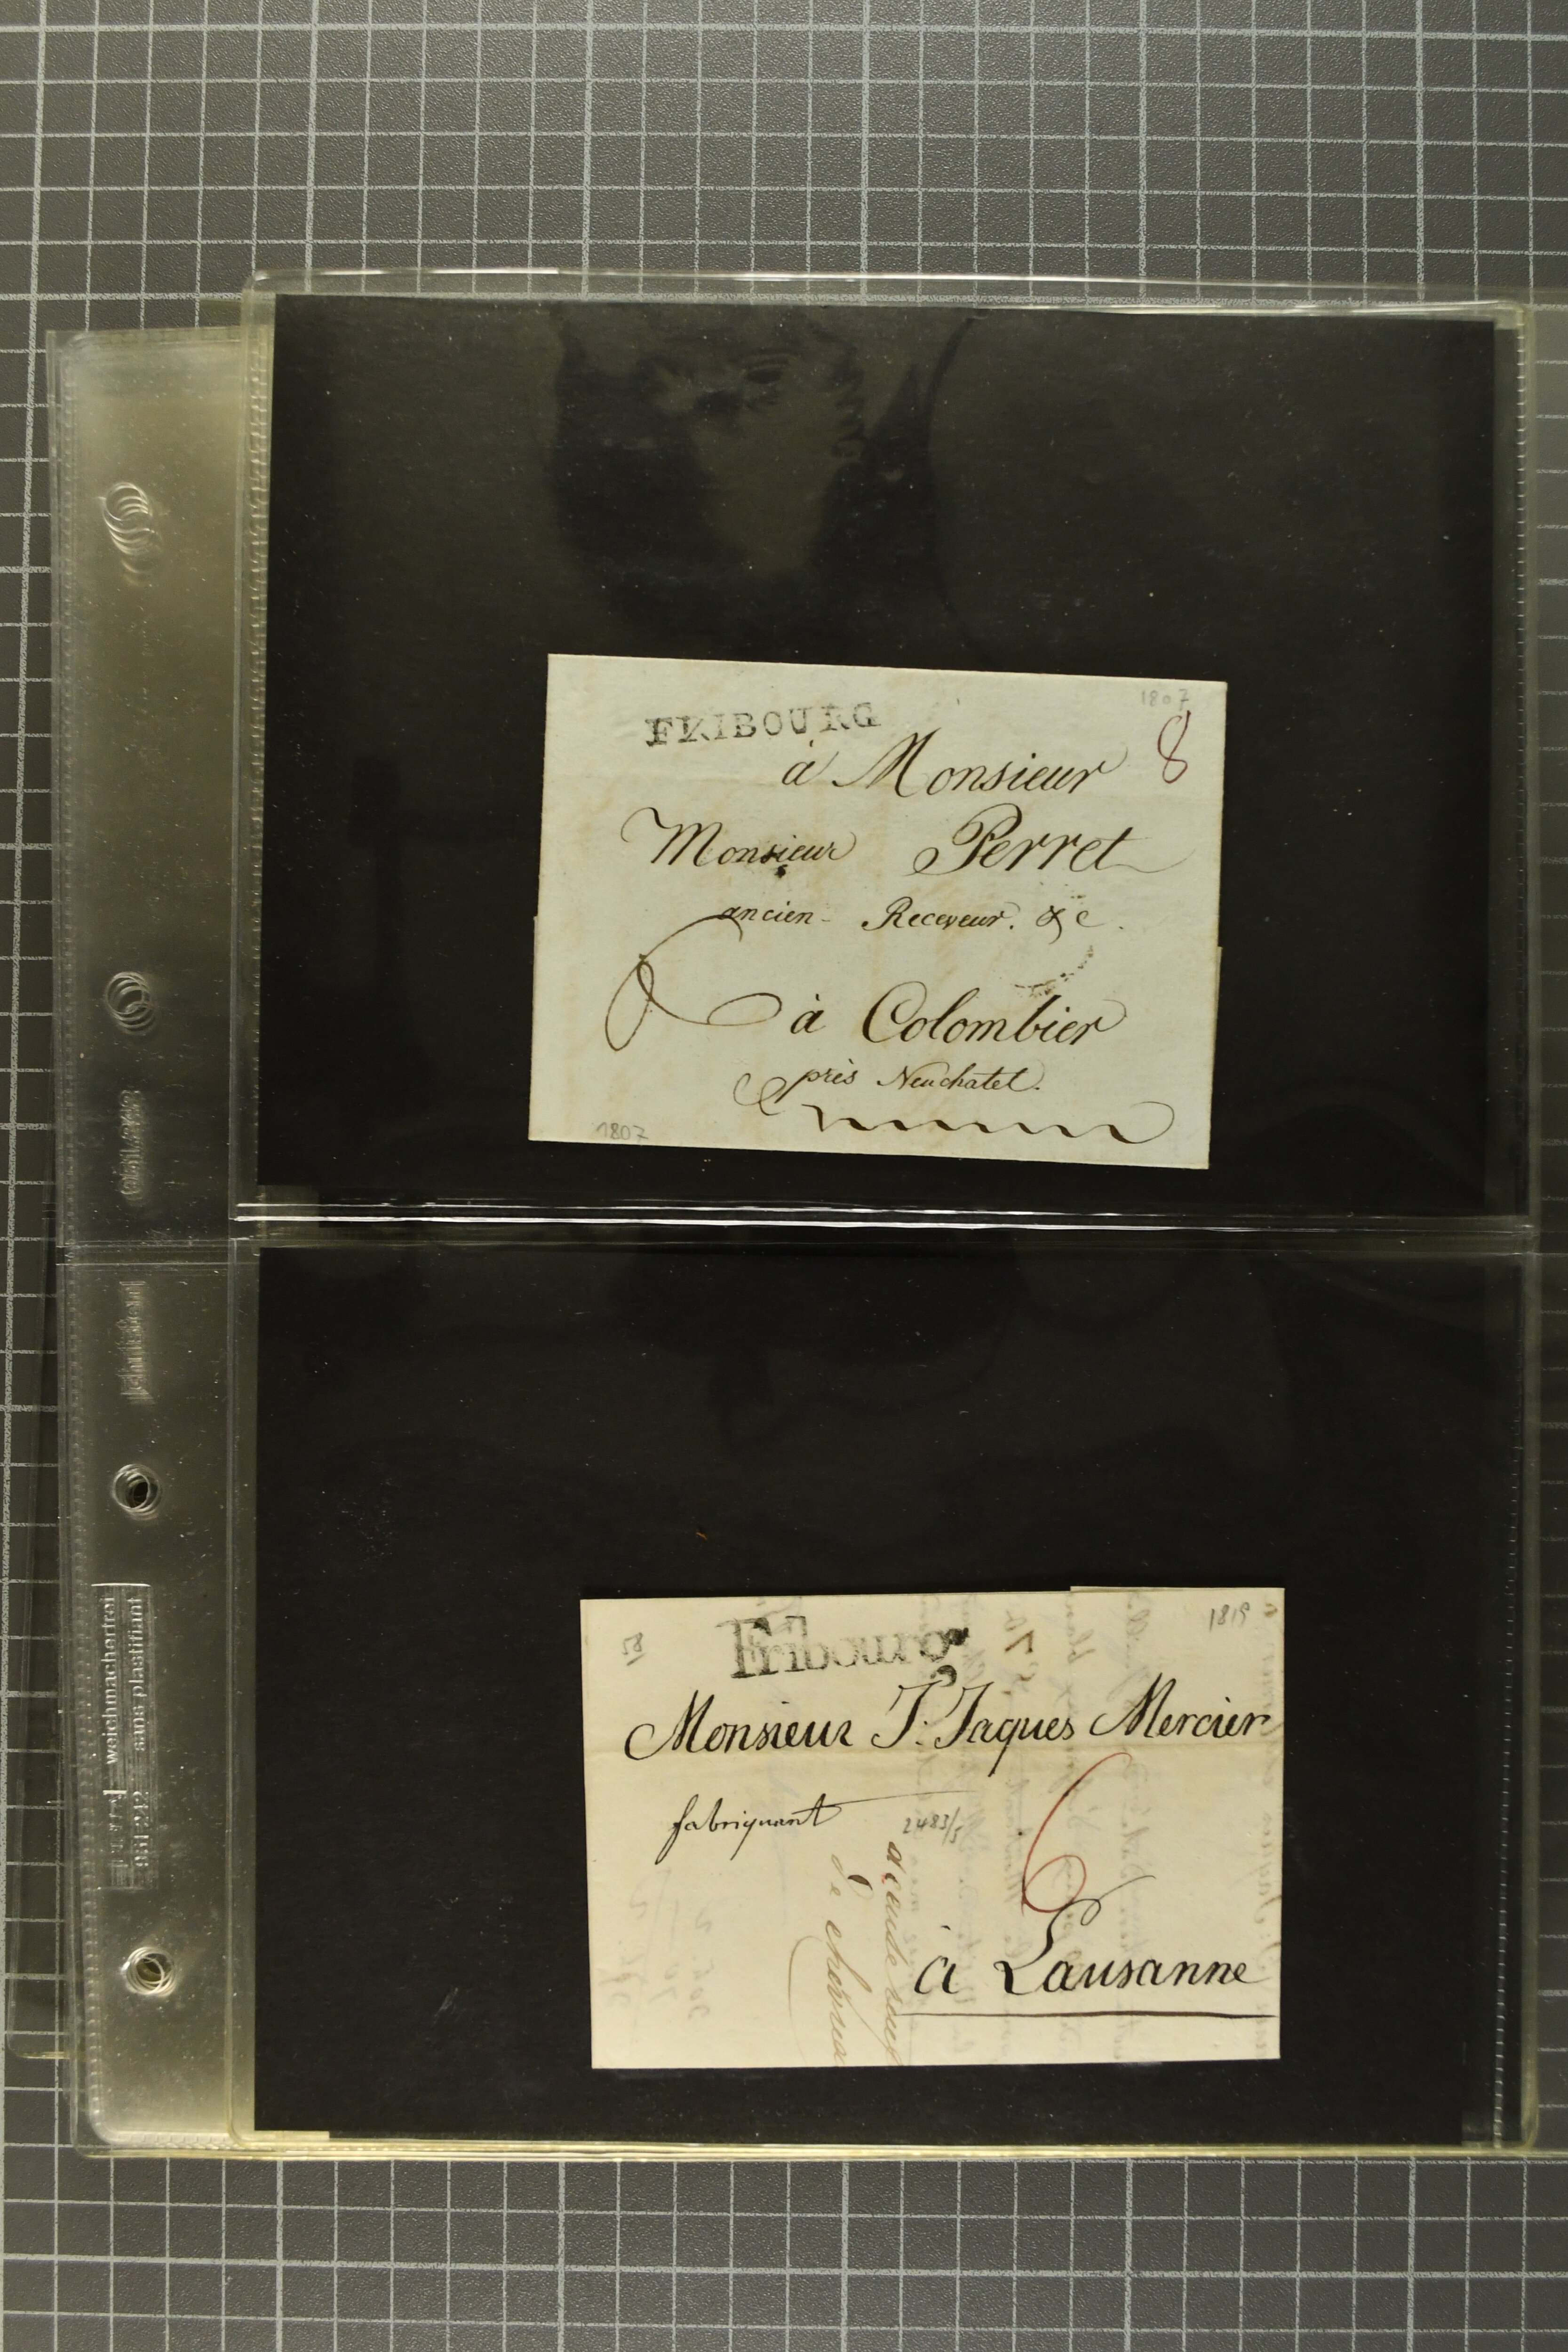 1807
FRIBOURG
8
à Monsieur
Monsieur Perret
ancien Receveur. &c.
à Colombier
près Neuchatel.
1807
1819
Fribourg
Monsieur J: Jaques Mercier
fabriquant
2483/5
6
à Lausanne
weichmacherfrei
sans plastifiant
961 242